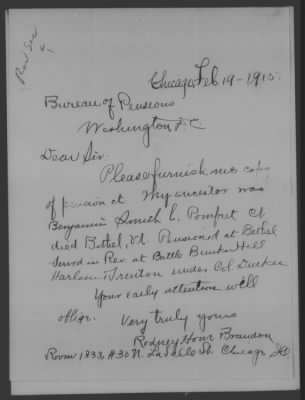 Rev Sec
Chicago, Feb 19 - 1915.
Bureau of Pensions
Washington D.C
Dear Sir:
Please furnish me copy
of pension of my ancestor was
Benjamin Smith b. Pomfret Ct
died Bethel, Vt. Pensioned at Bethel
Served in Rev. at Battle Bunker Hill
Harlem Trenton under Col Durkee
Your early attention will
oblige.
Very truly yours
Rodney Brandon
Room 1233, #30 N. LaSalle St. Chicago Ill